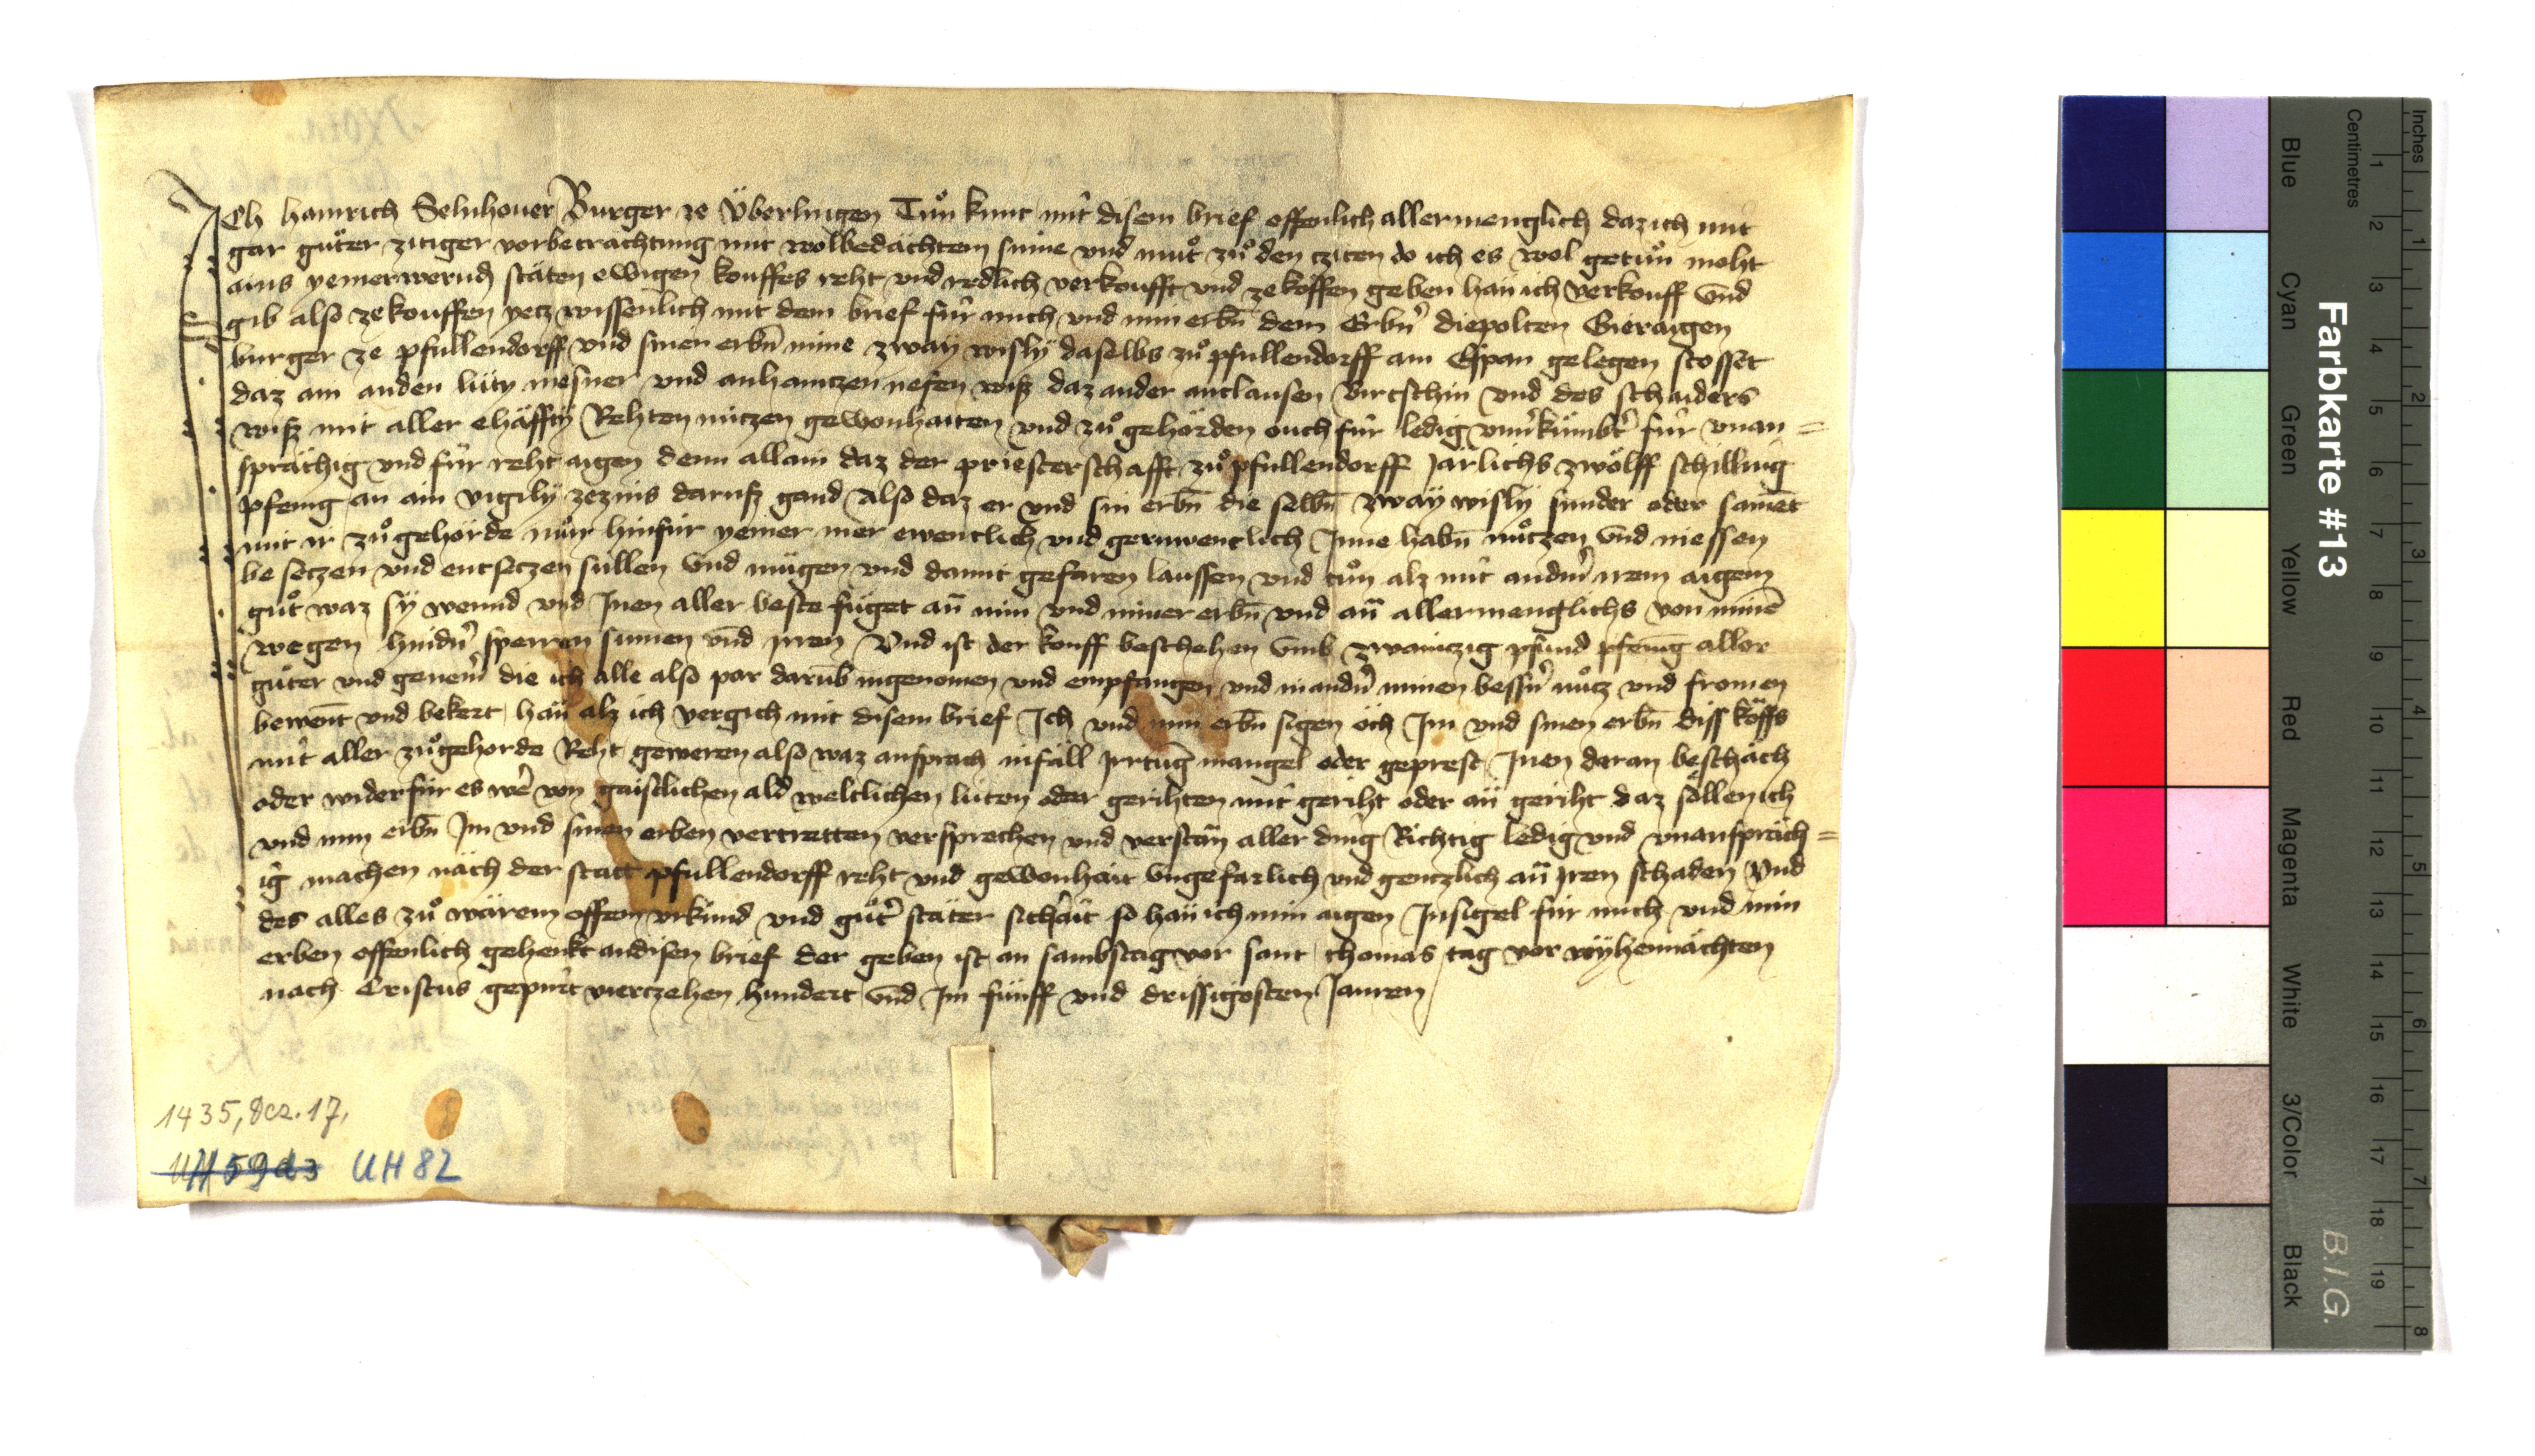 Ich hainrich Selnhouer Burger ze Überlingen Tuͦn kunt mit disem brief offenlich allermenglich daz ich mit
gar guͤter zitiger vorbetrachtung mit wolbedächtem sinne vnd muͦt zuͦ den cziten do ich es wol getuͦn moht
ains yemerwerend stäten ewigen kouffes reht vnd redlich verkoufft vnd ze köffen geben han ich verkouff vnd
gib also ze kouffen yetz wissenlich mit dem brief für mich vnd min erbn̄ dem Erbn̄ diepolten
burger ze pfullendorff vnd sinen erbn̄ mine zway wisly daselbs zuͦ pfullendorff am Espan gelegen stosset
daz ain an den lüty mesner vnd an haintzen nesen wiß daz ander an clausen Birtschin vnd des schniders
wiß mit aller ehäffty Rehten nützen gewonhaiten vnd zuͦ gehörden ouch für ledig vnuͥkümbt für vnan=
sprächig vnd für reht aigen denn allain daz der priesterschafft zuͦ pfullendorff Järlichs zwölff schilling
pfenig an ain vigily ze zins daruß gand Also daz er vnd sin erbn̄ die selbn̄ zway wisly sunder oder sament
mit ir zuͦ gehörde nuͦn hinfür yemer mer ewenclich vnd geruwenclich Inne habn̄ nuͤtzen vnd niessen
be setzen vnd entsetzen süllen vnd mügen vnd damit gefaren laussen vnd tuͦn alz mit andrn̄ irem aigem
guͦt waz sy wennd vnd Inen aller beste füget an̄ min vnd miner erbn̄ vnd an̄ allermenglichs von minē
wegen hindrn̄ sperren sumen vnd irren Vnd ist der kouff beschehen vmb zwainczig pfund pfenīg aller
guͤter vnd genem̄ die ich alle also par darūb ingenomen vnd empfangen vnd in andrn̄ minen bessrn̄ nuͦtz vnd fromen
bewent vnd bekert han alz ich vergich mit disem brief Ich vnd min erbn̄ sigen öch Im vnd sinen erbn̄ diss köffs
mit aller zuͦgehorde Reht geweren also waz ansprach infäll Irrtūg mangel oder geprest Inen daran beschäch
oder widerfür es wer von gaistlichen ald weltlichen lüten oder gerihten mit geriht oder an geriht daz söllen ich
vnd min erbn̄ Im vnd sinen erben vertretten versprechen vnd verstan aller ding Richtig ledig vnd vnanspräch=
ig machen nach der statt pfullendorff reht vnd gewonhait vngefarlich vnd gentzlich an̄ iren schaden Vnd
des alles zuͦ wärem offem vrkünd vnd guͤter stäter sichait so han ich min aigen Insigel für mich vnd min
erben offenlich gehenkt an disen brief der geben ist an sambstag vor sant thomas tag vor wyhennächten
nach Cristus gepurt vierczehen hundert vnd Im fünff vnd drissigosten Jauren
1435, Dez. 17.
UH 59 d3 UH 82
Farbkarte #13
Blue Cyan Green Yellow Red Magenta White 3/Color Black
Centimetres
1 2 3 4 5 6 7 8 9 10 11 12 13 14 15 16 17 18 19
Inches
1 2 3 4 5 6 7 8
B.I.G.